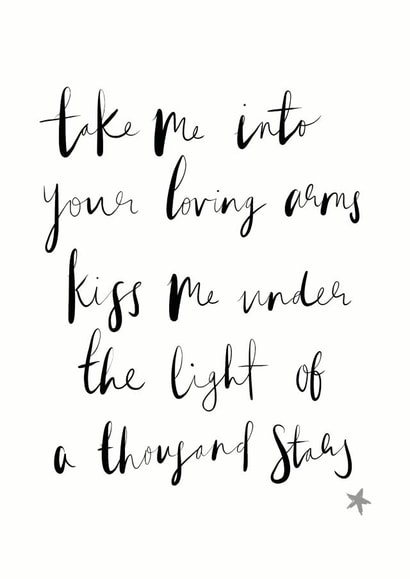 take me into
your loving arms
kiss me under
the light of
a thousand stars